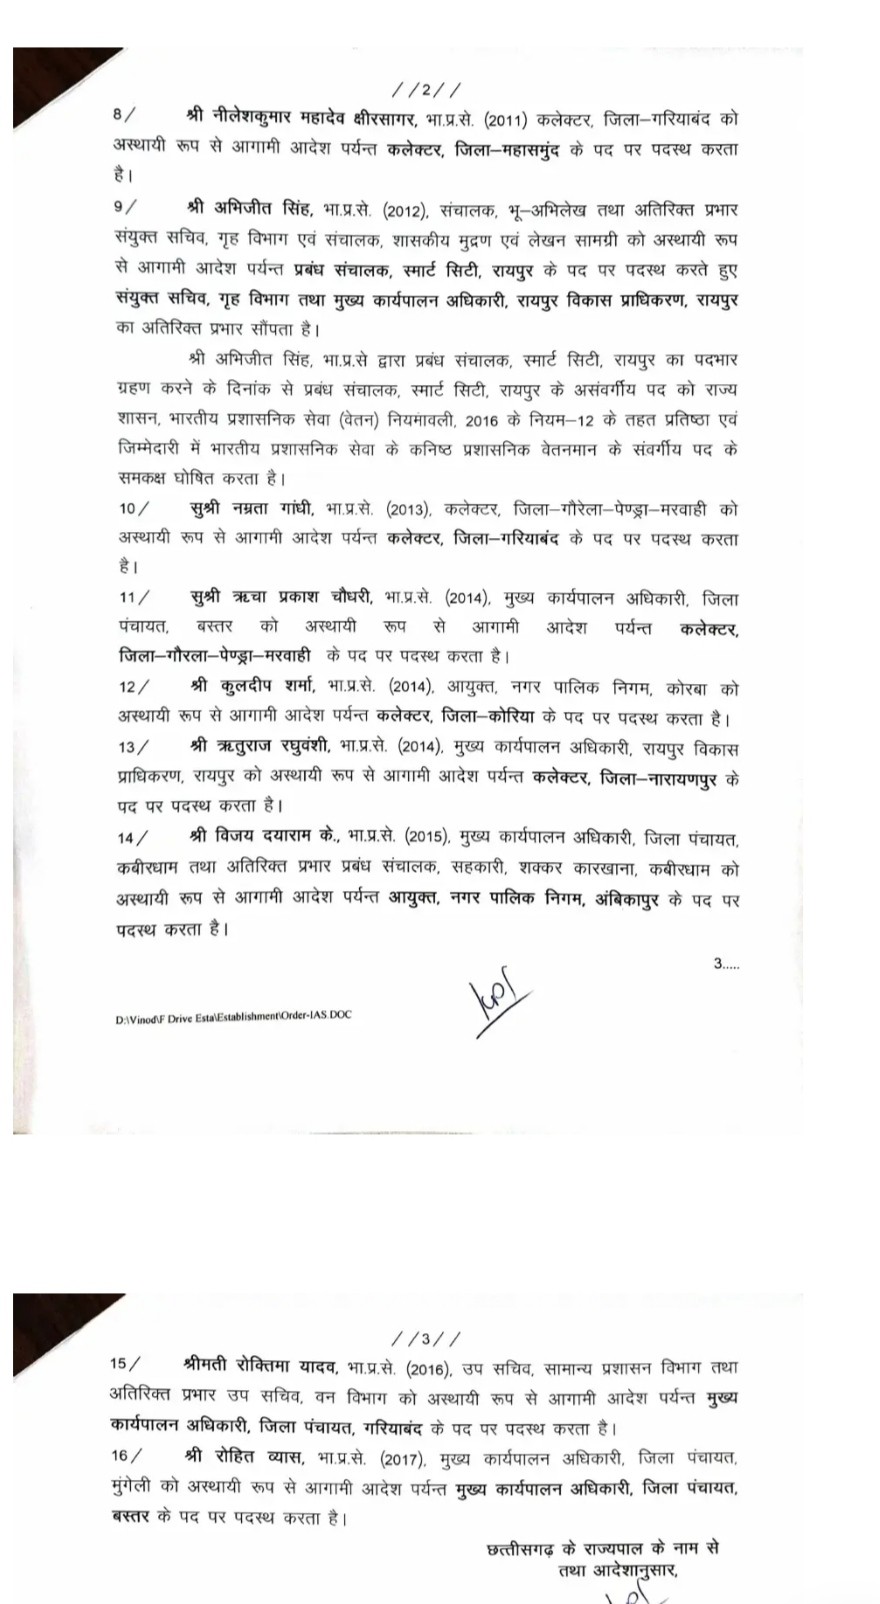 //2//
8/ श्री नीलेशकुमार महादेव क्षीरसागर, भा.प्र.से. (2011) कलेक्टर, जिला–गरियाबंद को
अस्थायी रूप से आगामी आदेश पर्यन्त कलेक्टर, जिला–महासमुंद के पद पर पदस्थ करता
है।
9/ श्री अभिजीत सिंह, भा.प्र.से. (2012), संचालक, भू–अभिलेख तथा अतिरिक्त प्रभार
संयुक्त सचिव, गृह विभाग एवं संचालक, शासकीय मुद्रण एवं लेखन सामग्री को अस्थायी रूप
से आगामी आदेश पर्यन्त प्रबंध संचालक, स्मार्ट सिटी, रायपुर के पद पर पदस्थ करते हुए
संयुक्त सचिव, गृह विभाग तथा मुख्य कार्यपालन अधिकारी, रायपुर विकास प्राधिकरण, रायपुर
का अतिरिक्त प्रभार सौंपता है।
श्री अभिजीत सिंह, भा.प्र.से द्वारा प्रबंध संचालक, स्मार्ट सिटी, रायपुर का पदभार
ग्रहण करने के दिनांक से प्रबंध संचालक, स्मार्ट सिटी, रायपुर के असंवर्गीय पद को राज्य
शासन, भारतीय प्रशासनिक सेवा (वेतन) नियमावली, 2016 के नियम–12 के तहत प्रतिष्ठा एवं
जिम्मेदारी में भारतीय प्रशासनिक सेवा के कनिष्ठ प्रशासनिक वेतनमान के संवर्गीय पद के
समकक्ष घोषित करता है।
10/ सुश्री नम्रता गांधी, भा.प्र.से. (2013), कलेक्टर, जिला–गौरेला–पेण्ड्रा–मरवाही को
अस्थायी रूप से आगामी आदेश पर्यन्त कलेक्टर, जिला–गरियाबंद के पद पर पदस्थ करता
है।
11/ सुश्री ऋचा प्रकाश चौधरी, भा.प्र.से. (2014), मुख्य कार्यपालन अधिकारी, जिला
पंचायत, बस्तर को अस्थायी रूप से आगामी आदेश पर्यन्त कलेक्टर,
जिला–गौरला–पेण्ड्रा–मरवाही के पद पर पदस्थ करता है।
12/ श्री कुलदीप शर्मा, भा.प्र.से. (2014), आयुक्त, नगर पालिक निगम, कोरबा को
अस्थायी रूप से आगामी आदेश पर्यन्त कलेक्टर, जिला–कोरिया के पद पर पदस्थ करता है।
13/ श्री ऋतुराज रघुवंशी, भा.प्र.से. (2014), मुख्य कार्यपालन अधिकारी, रायपुर विकास
प्राधिकरण, रायपुर को अस्थायी रूप से आगामी आदेश पर्यन्त कलेक्टर, जिला–नारायणपुर के
पद पर पदस्थ करता है।
14/ श्री विजय दयाराम के., भा.प्र.से. (2015), मुख्य कार्यपालन अधिकारी, जिला पंचायत,
कबीरधाम तथा अतिरिक्त प्रभार प्रबंध संचालक, सहकारी, शक्कर कारखाना, कबीरधाम को
अस्थायी रूप से आगामी आदेश पर्यन्त आयुक्त, नगर पालिक निगम, अंबिकापुर के पद पर
पदस्थ करता है।
3.....
D:\Vinod\F Drive Esta\Establishment\Order-IAS.DOC
//3//
15/ श्रीमती रोक्तिमा यादव, भा.प्र.से. (2016), उप सचिव, सामान्य प्रशासन विभाग तथा
अतिरिक्त प्रभार उप सचिव, वन विभाग को अस्थायी रूप से आगामी आदेश पर्यन्त मुख्य
कार्यपालन अधिकारी, जिला पंचायत, गरियाबंद के पद पर पदस्थ करता है।
16/ श्री रोहित व्यास, भा.प्र.से. (2017), मुख्य कार्यपालन अधिकारी, जिला पंचायत,
मुंगेली को अस्थायी रूप से आगामी आदेश पर्यन्त मुख्य कार्यपालन अधिकारी, जिला पंचायत,
बस्तर के पद पर पदस्थ करता है।
छत्तीसगढ़ के राज्यपाल के नाम से
तथा आदेशानुसार,